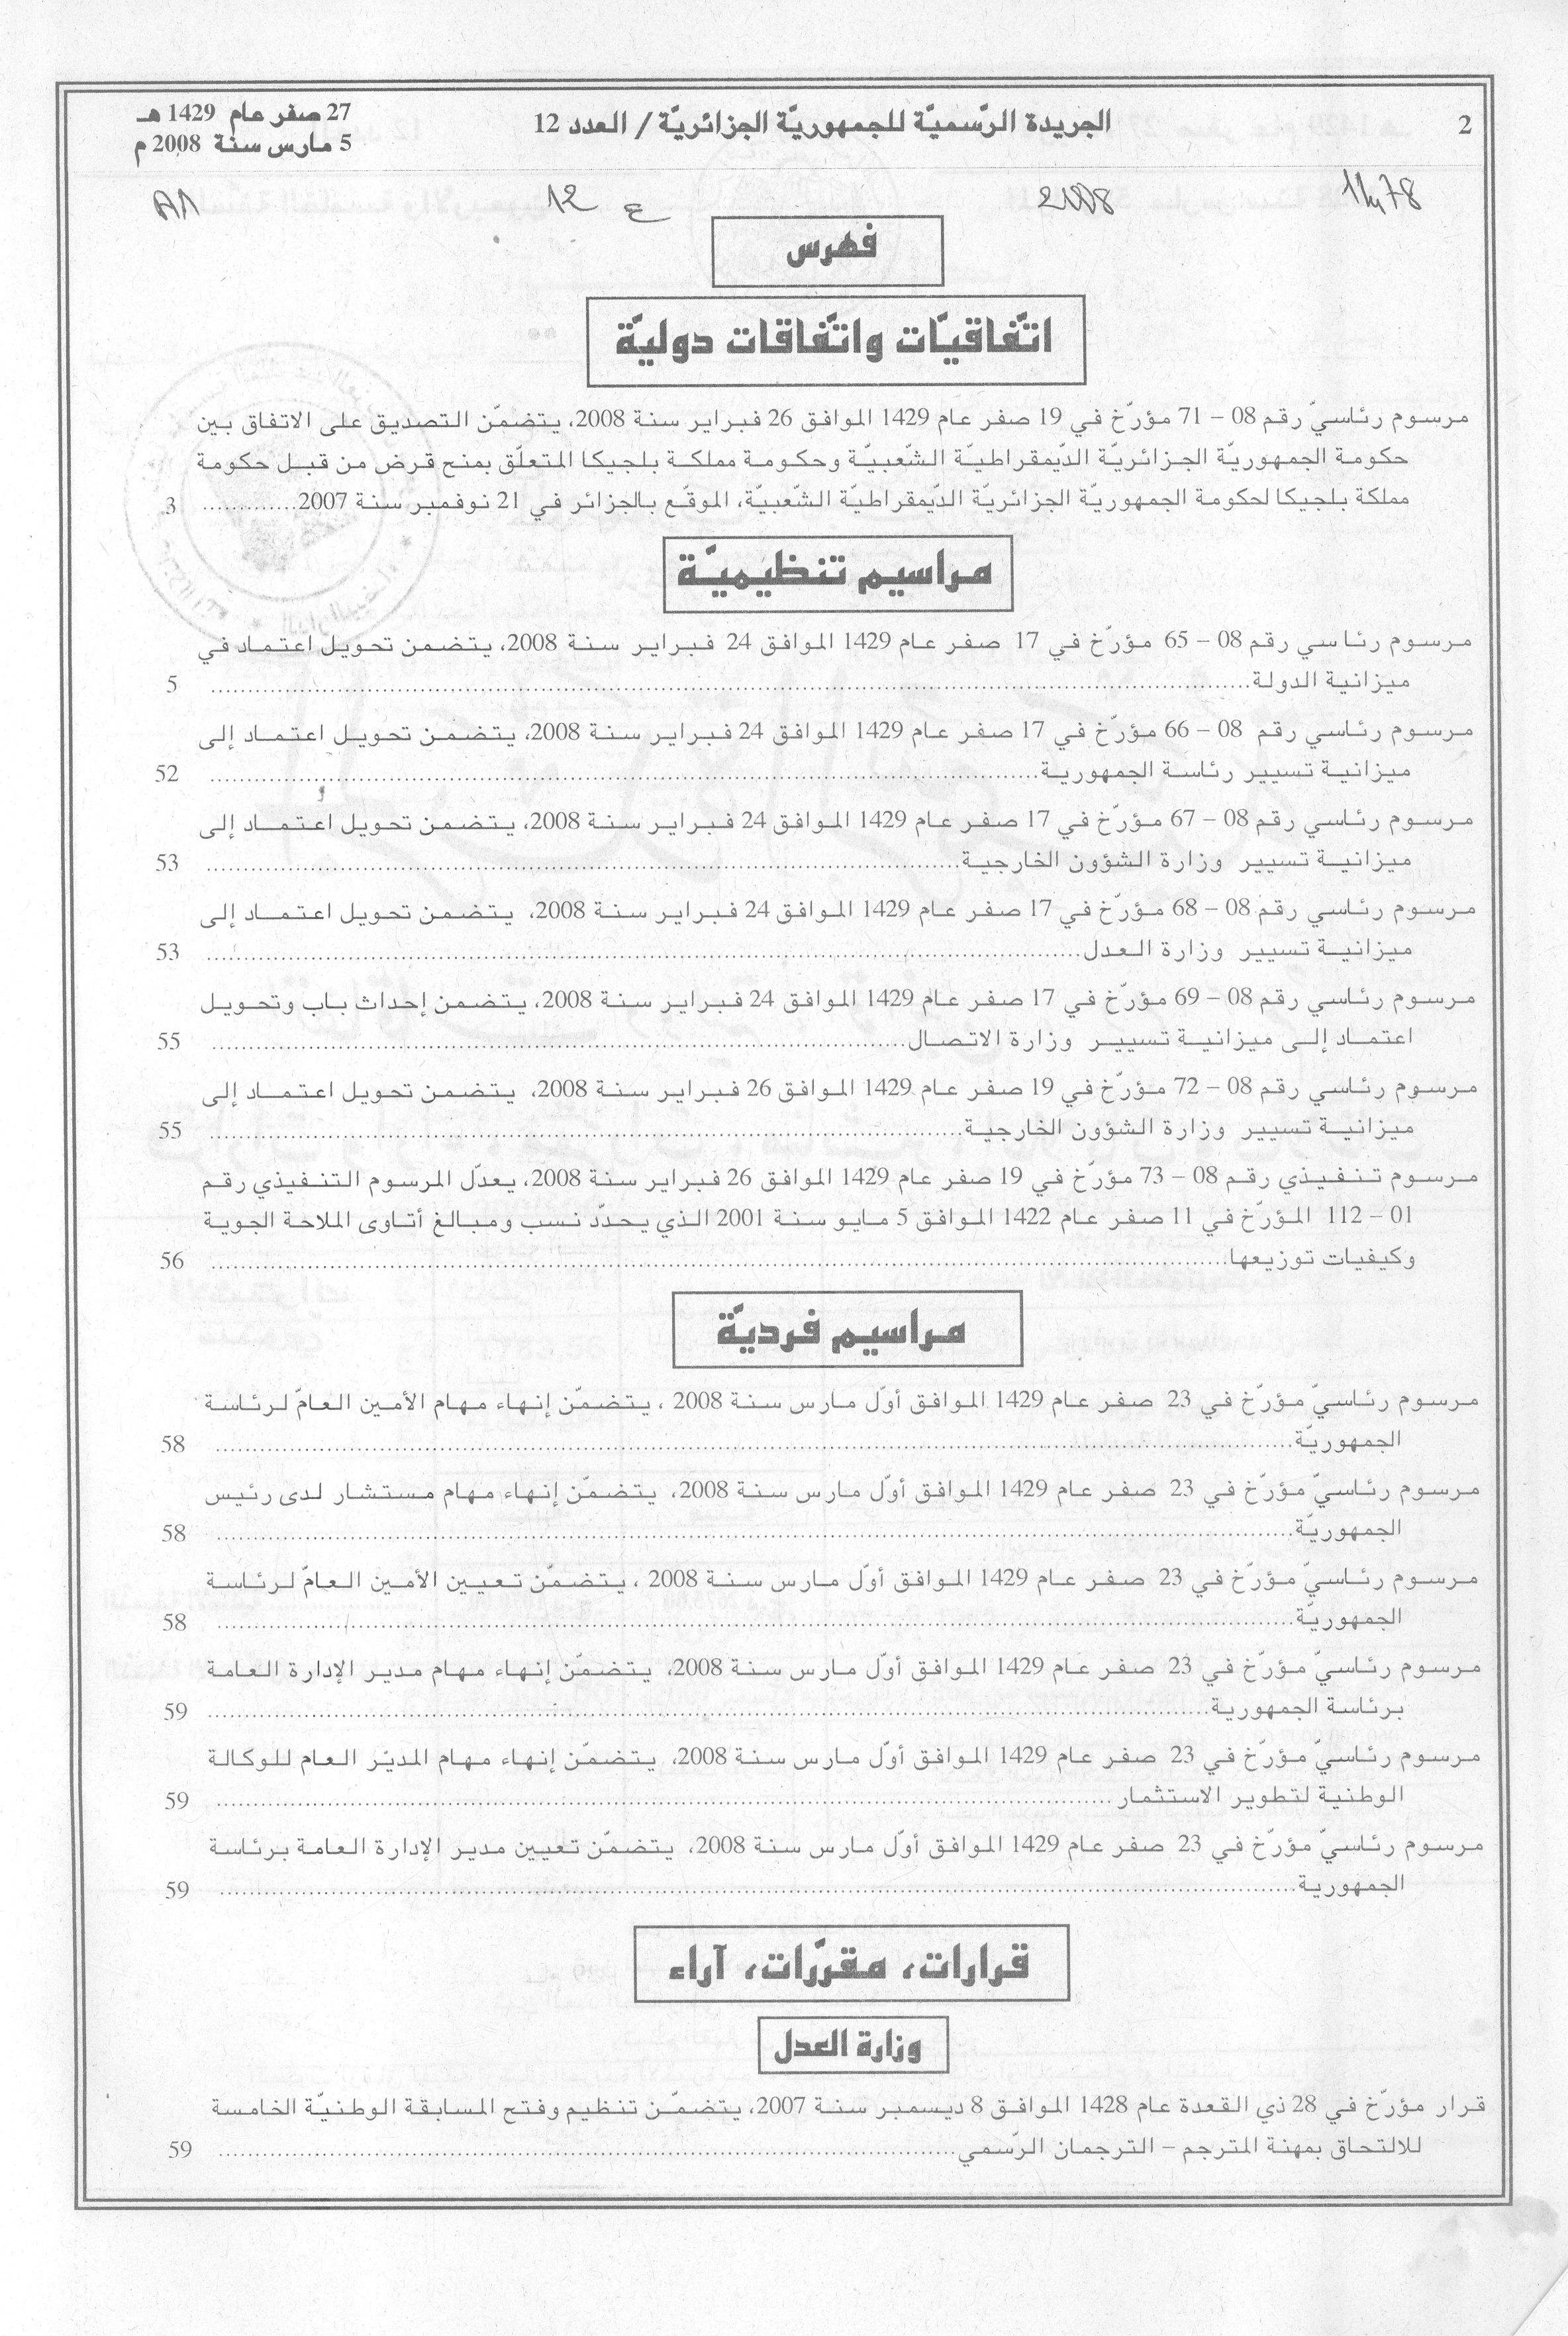 2
الجريدة الرّسميّة للجمهوريّة الجزائريّة / العدد 12
27 صفر عام 1429 هـ
5 مارس سنة 2008 م
2008
ع 12
فهرس
اتّفاقيّات واتّفاقات دوليّة
مرسوم رئاسيّ رقم 08 – 71 مؤرّخ في 19 صفر عام 1429 الموافق 26 فبراير سنة 2008، يتضمّن التصديق على الاتفاق بين
حكومة الجمهوريّة الجزائريّة الدّيمقراطيّة الشّعبيّة وحكومة مملكة بلجيكا المتعلّق بمنح قرض من قبل حكومة
مملكة بلجيكا لحكومة الجمهوريّة الجزائريّة الدّيمقراطيّة الشّعبيّة، الموقّع بالجزائر في 21 نوفمبر سنة 2007............. 3
مراسيم تنظيميّة
مرسوم رئاسي رقم 08 – 65 مؤرّخ في 17 صفر عام 1429 الموافق 24 فبراير سنة 2008، يتضمن تحويل اعتماد في
ميزانية الدولة............. 5
مرسوم رئاسي رقم 08 – 66 مؤرّخ في 17 صفر عام 1429 الموافق 24 فبراير سنة 2008، يتضمن تحويل اعتماد إلى
ميزانية تسيير رئاسة الجمهورية............. 52
مرسوم رئاسي رقم 08 – 67 مؤرّخ في 17 صفر عام 1429 الموافق 24 فبراير سنة 2008، يتضمن تحويل اعتماد إلى
ميزانية تسيير وزارة الشؤون الخارجية............. 53
مرسوم رئاسي رقم 08 – 68 مؤرّخ في 17 صفر عام 1429 الموافق 24 فبراير سنة 2008، يتضمن تحويل اعتماد إلى
ميزانية تسيير وزارة العدل............. 53
مرسوم رئاسي رقم 08 – 69 مؤرّخ في 17 صفر عام 1429 الموافق 24 فبراير سنة 2008، يتضمن إحداث باب وتحويل
اعتماد إلى ميزانية تسيير وزارة الاتصال............. 55
مرسوم رئاسي رقم 08 – 72 مؤرّخ في 19 صفر عام 1429 الموافق 26 فبراير سنة 2008، يتضمن تحويل اعتماد إلى
ميزانية تسيير وزارة الشؤون الخارجية............. 55
مرسوم تنفيذي رقم 08 – 73 مؤرّخ في 19 صفر عام 1429 الموافق 26 فبراير سنة 2008، يعدّل المرسوم التنفيذي رقم
01 – 112 المؤرّخ في 11 صفر عام 1422 الموافق 5 مايو سنة 2001 الذي يحدّد نسب ومبالغ أتاوى الملاحة الجوية
وكيفيات توزيعها............. 56
مراسيم فرديّة
مرسوم رئاسيّ مؤرّخ في 23 صفر عام 1429 الموافق أوّل مارس سنة 2008 ، يتضمّن إنهاء مهام الأمين العامّ لرئاسة
الجمهوريّة............. 58
مرسوم رئاسيّ مؤرّخ في 23 صفر عام 1429 الموافق أوّل مارس سنة 2008، يتضمّن إنهاء مهام مستشار لدى رئيس
الجمهوريّة............. 58
مرسوم رئاسيّ مؤرّخ في 23 صفر عام 1429 الموافق أوّل مارس سنة 2008 ، يتضمّن تعيين الأمين العامّ لرئاسة
الجمهوريّة............. 58
مرسوم رئاسيّ مؤرّخ في 23 صفر عام 1429 الموافق أوّل مارس سنة 2008، يتضمّن إنهاء مهام مدير الإدارة العامة
برئاسة الجمهورية............. 59
مرسوم رئاسيّ مؤرّخ في 23 صفر عام 1429 الموافق أوّل مارس سنة 2008، يتضمّن إنهاء مهام المدير العام للوكالة
الوطنية لتطوير الاستثمار............. 59
مرسوم رئاسيّ مؤرّخ في 23 صفر عام 1429 الموافق أوّل مارس سنة 2008، يتضمّن تعيين مدير الإدارة العامة برئاسة
الجمهورية............. 59
قرارات، مقرّرات، آراء
وزارة العدل
قرار مؤرّخ في 28 ذي القعدة عام 1428 الموافق 8 ديسمبر سنة 2007، يتضمّن تنظيم وفتح المسابقة الوطنيّة الخامسة
للالتحاق بمهنة المترجم – الترجمان الرّسمي............. 59